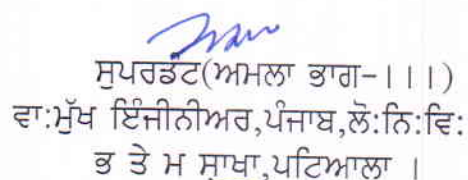 ਸੁਪਰਡੰਟ(ਅਮਲਾ ਭਾਗ-|||)
ਵਾ:ਮੁੱਖ ਇੰਜੀਨੀਅਰ,ਪੰਜਾਬ,ਲੋ:ਨਿ:ਵਿ:
ਭ ਤੇ ਮ ਸ਼ਾਖਾ,ਪਟਿਆਲਾ ।